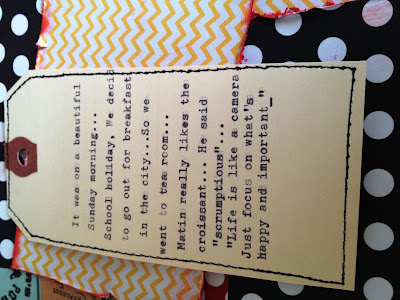 It was on a beautiful
Sunday morning...
School holiday, We decid
to go out for breakfast
in the city...So we
went to team room...
Matin really likes the
croissant... He said
"scrumptious"...
"Life is like a camera
Just focus on what's
happy and important_"